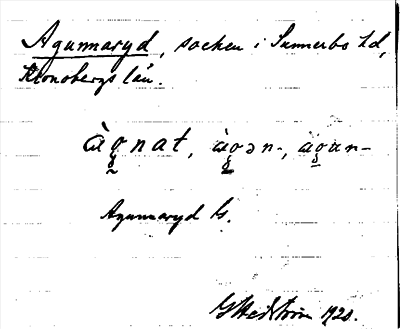 Agunnaryd, socken i Sunnerbo hd,
Kronobergs län.
àgnat, àgən-, àgan-
Agunnaryd ls.
GHedström 1920.